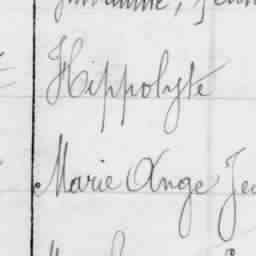 Hippolyte
Marie Ange Je